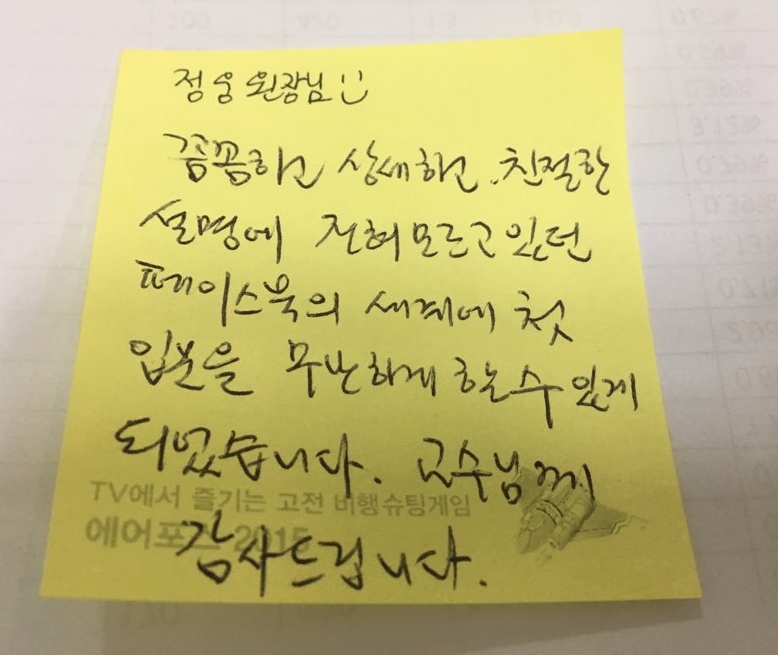 정웅 원장님 :)
꼼꼼하고 상세하고 친절한
설명에 전혀 모르고 있던
페이스북의 세계에 첫
입문을 무난하게 할 수 있게
되었습니다. 교수님께
TV에서 즐기는 고전 비행슈팅게임
에어포스 2015
감사드립니다.